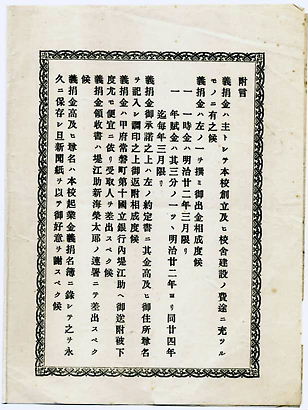 附言
義捐金ハ主トシテ本校創立及ヒ校舎建設ノ費途ニ充ツル
モノニ有之候
義捐金ハ左ノ一ヲ撰ミ御出金相成度候
一 一時金ハ明治廿二年三月限リ
一 年賦金ハ其三分ノ一ツヽ明治廿二年ヨリ同廿四年
迄毎年三月限リ
義捐金御承諾之上ハ左ノ約定書ニ其金高及ヒ御住所尊名
ヲ記入シ調印之上御返附相成度候
義捐金ハ甲府常磐町第十國立銀行內堀江助ヘ御送附被下
度尤モ便宜ニ依リ受取人ヲ差出スヘク候
義捐金領收書ハ堀江助新海榮太郎ノ連署ニテ差出スヘク
候
義捐金高及ヒ尊名ハ本校起業金義捐名簿ニ錄シテ之ヲ永
久ニ保存シ且新聞紙ヲ以テ御好意ヲ謝スヘク候